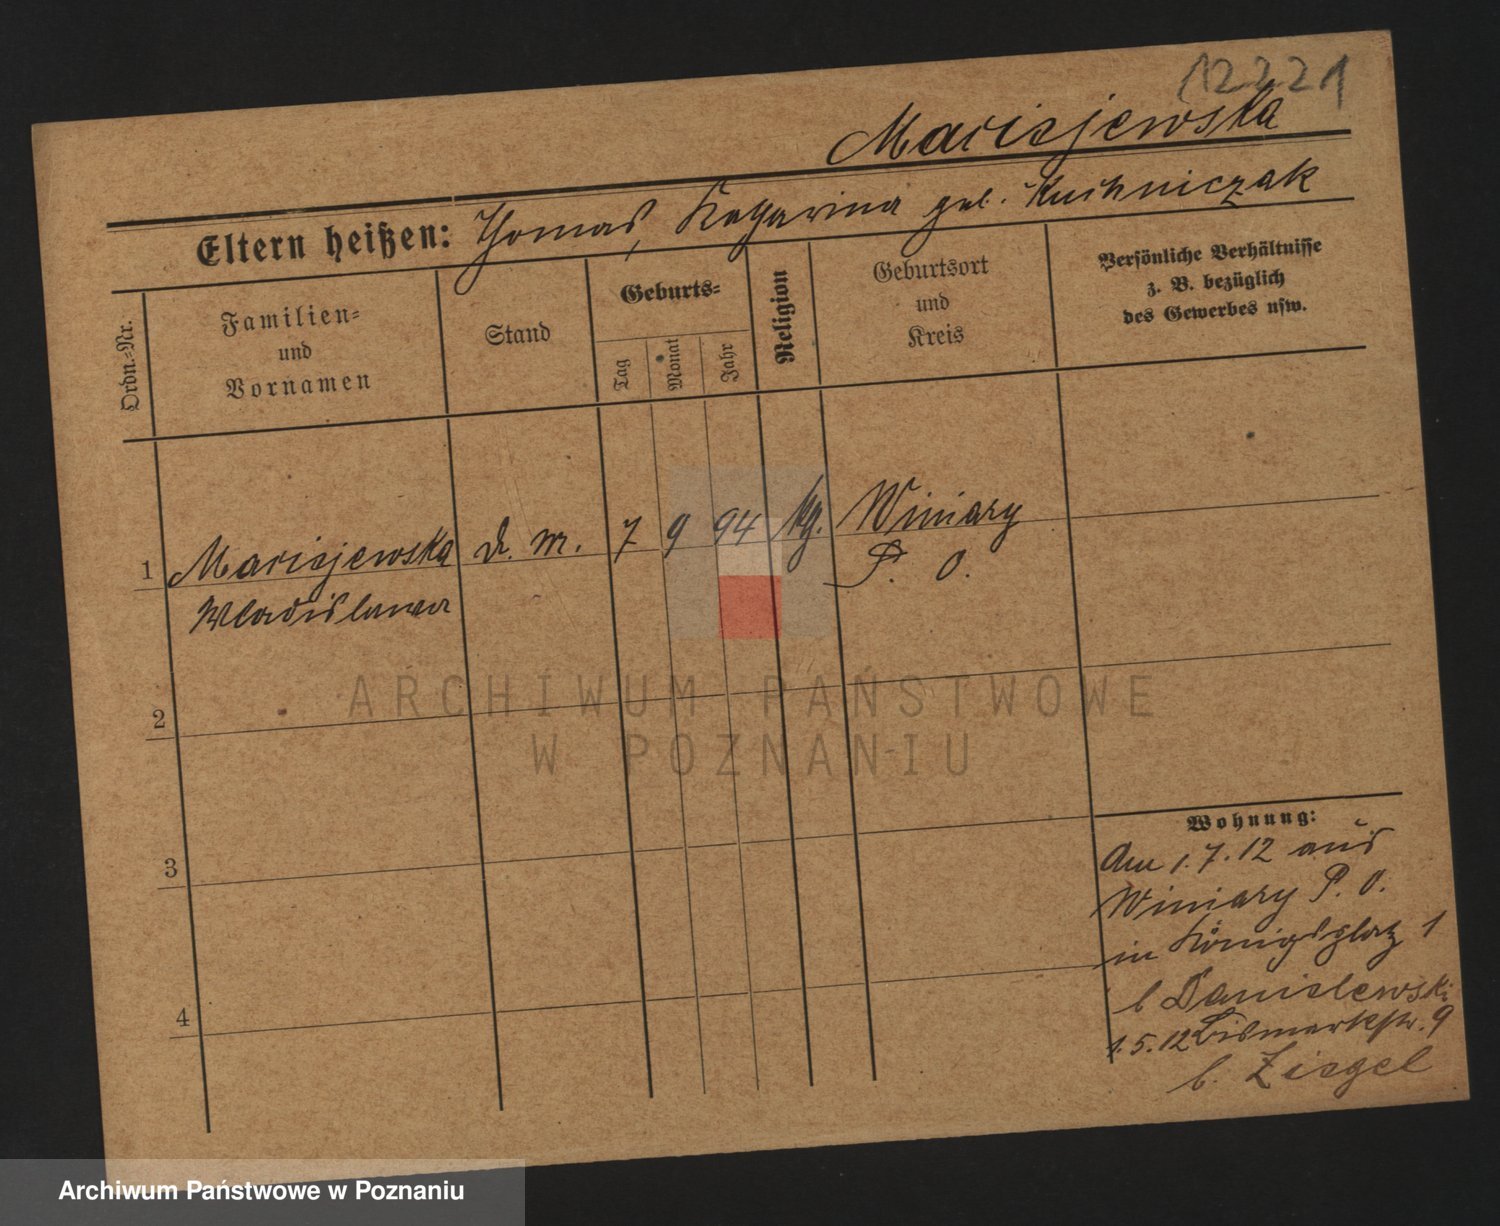 12221
Maciejewska
Eltern heißen: Thomas, Katharina geb. Kuchniczak
Ordn.=Nr.
Familien=
und
Vornamen
Stand
Geburts=
Tag
Monat
Jahr
Religion
Geburtsort
und
Kreis
Persönliche Verhältnisse
z. B. bezüglich
des Gewerbes usw.
1 Maciejewska d. m. 7 9 94 Winiary
Wladislawa P. O.
2
3
4
Wohnung:
Am 1.7.12 aus
Winiary P. O.
in Königsplatz 1
b Danielewski
1.5.12 Bismarckstr. 9
b. Ziegel
ARCHIWUM PAŃSTWOWE
W POZNANIU
Archiwum Państwowe w Poznaniu